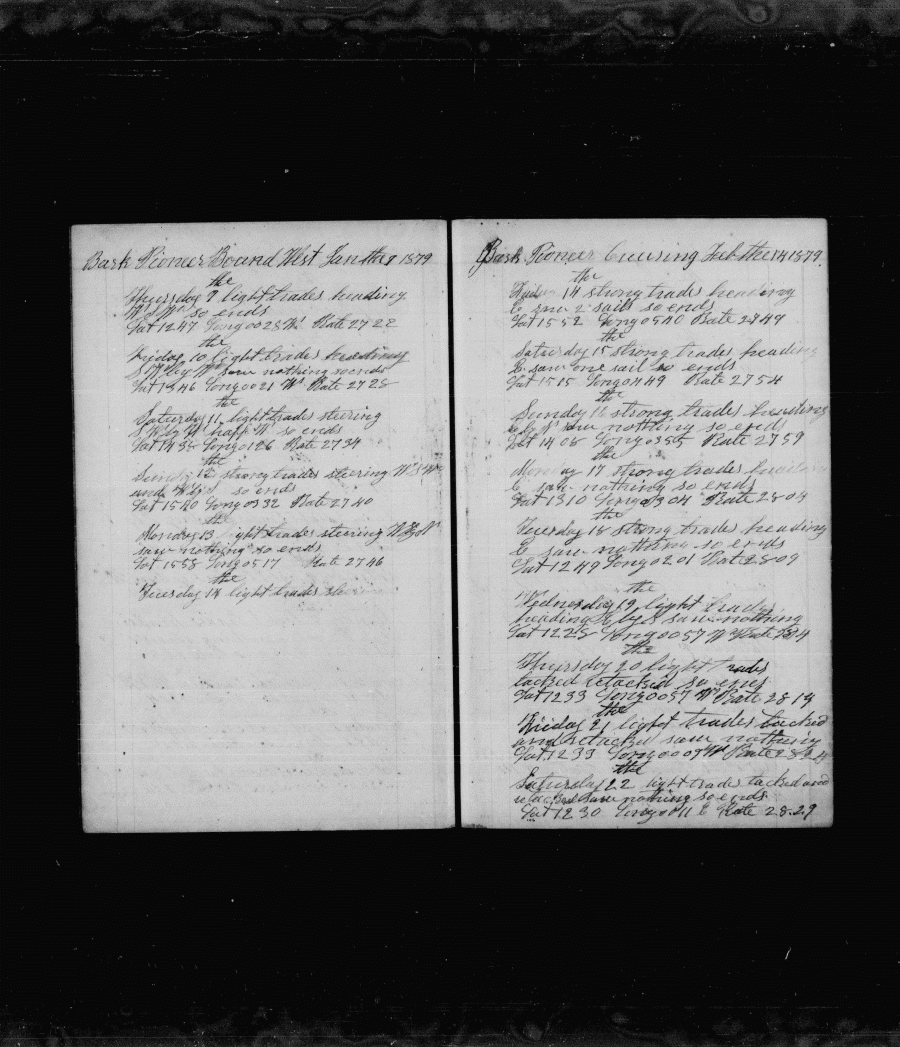 Bark Pioneer Bound West Jan the 9 1879
the
Thursday 9 light trades heading
so ends
Lat 1247 Long 0028 W Rate 27 22
the
Friday 10 light trades heading
S W by W saw nothing so ends
Lat 1346 Long 0021 W Rate 27 28
the
Saturday 11 light trades steering
S W by W half W so ends
Lat 1435 Long 0126 Rate 27 34
the
Sunday 12 strong trades steering
and so ends
Lat 1540 Long 0332 Rate 27 40
the
Monday 13 ight trades steering
saw nothing so ends
Lat 1558 Long 0517 Rate 27 46
the
Tuesday 14 light trades
Bark Pioneer Cruising Feb the 14 1879.
the
14 strong trades heading
E saw 2 sails so ends
Lat 1552 Long 0540 Rate 2749
the
Saturday 15 strong trades heading
E saw one sail so ends
Lat 1515 Long 0449 Rate 2754
the
Sunday 16 strong trades heading
E by N saw nothing so ends
Lat 1408 Long 0355 Rate 2759
the
Monday 17 strong trades heading
E saw nothing so ends
Lat 1310 Long 0304 Rate 2804
the
Tuesday 18 strong trades heading
E saw nothing so ends
Lat 1249 Long 0201 Rate 2809
the
Wednesday 19 light trades
heading by saw nothing
Lat 1228 Long 0057 W Rate 2814
the
Thursday 20 light trades
tacked retacked so ends
Lat 1233 Long 0057 W Rate 28 19
the
Friday 21 light trades tacked
and retacked saw nothing
Lat 1233 Long 0009 W Rate 2824
the
Saturday 22 light trades tacked and
retacked saw nothing so ends
Lat 1230 Long 0011 E Rate 28.29